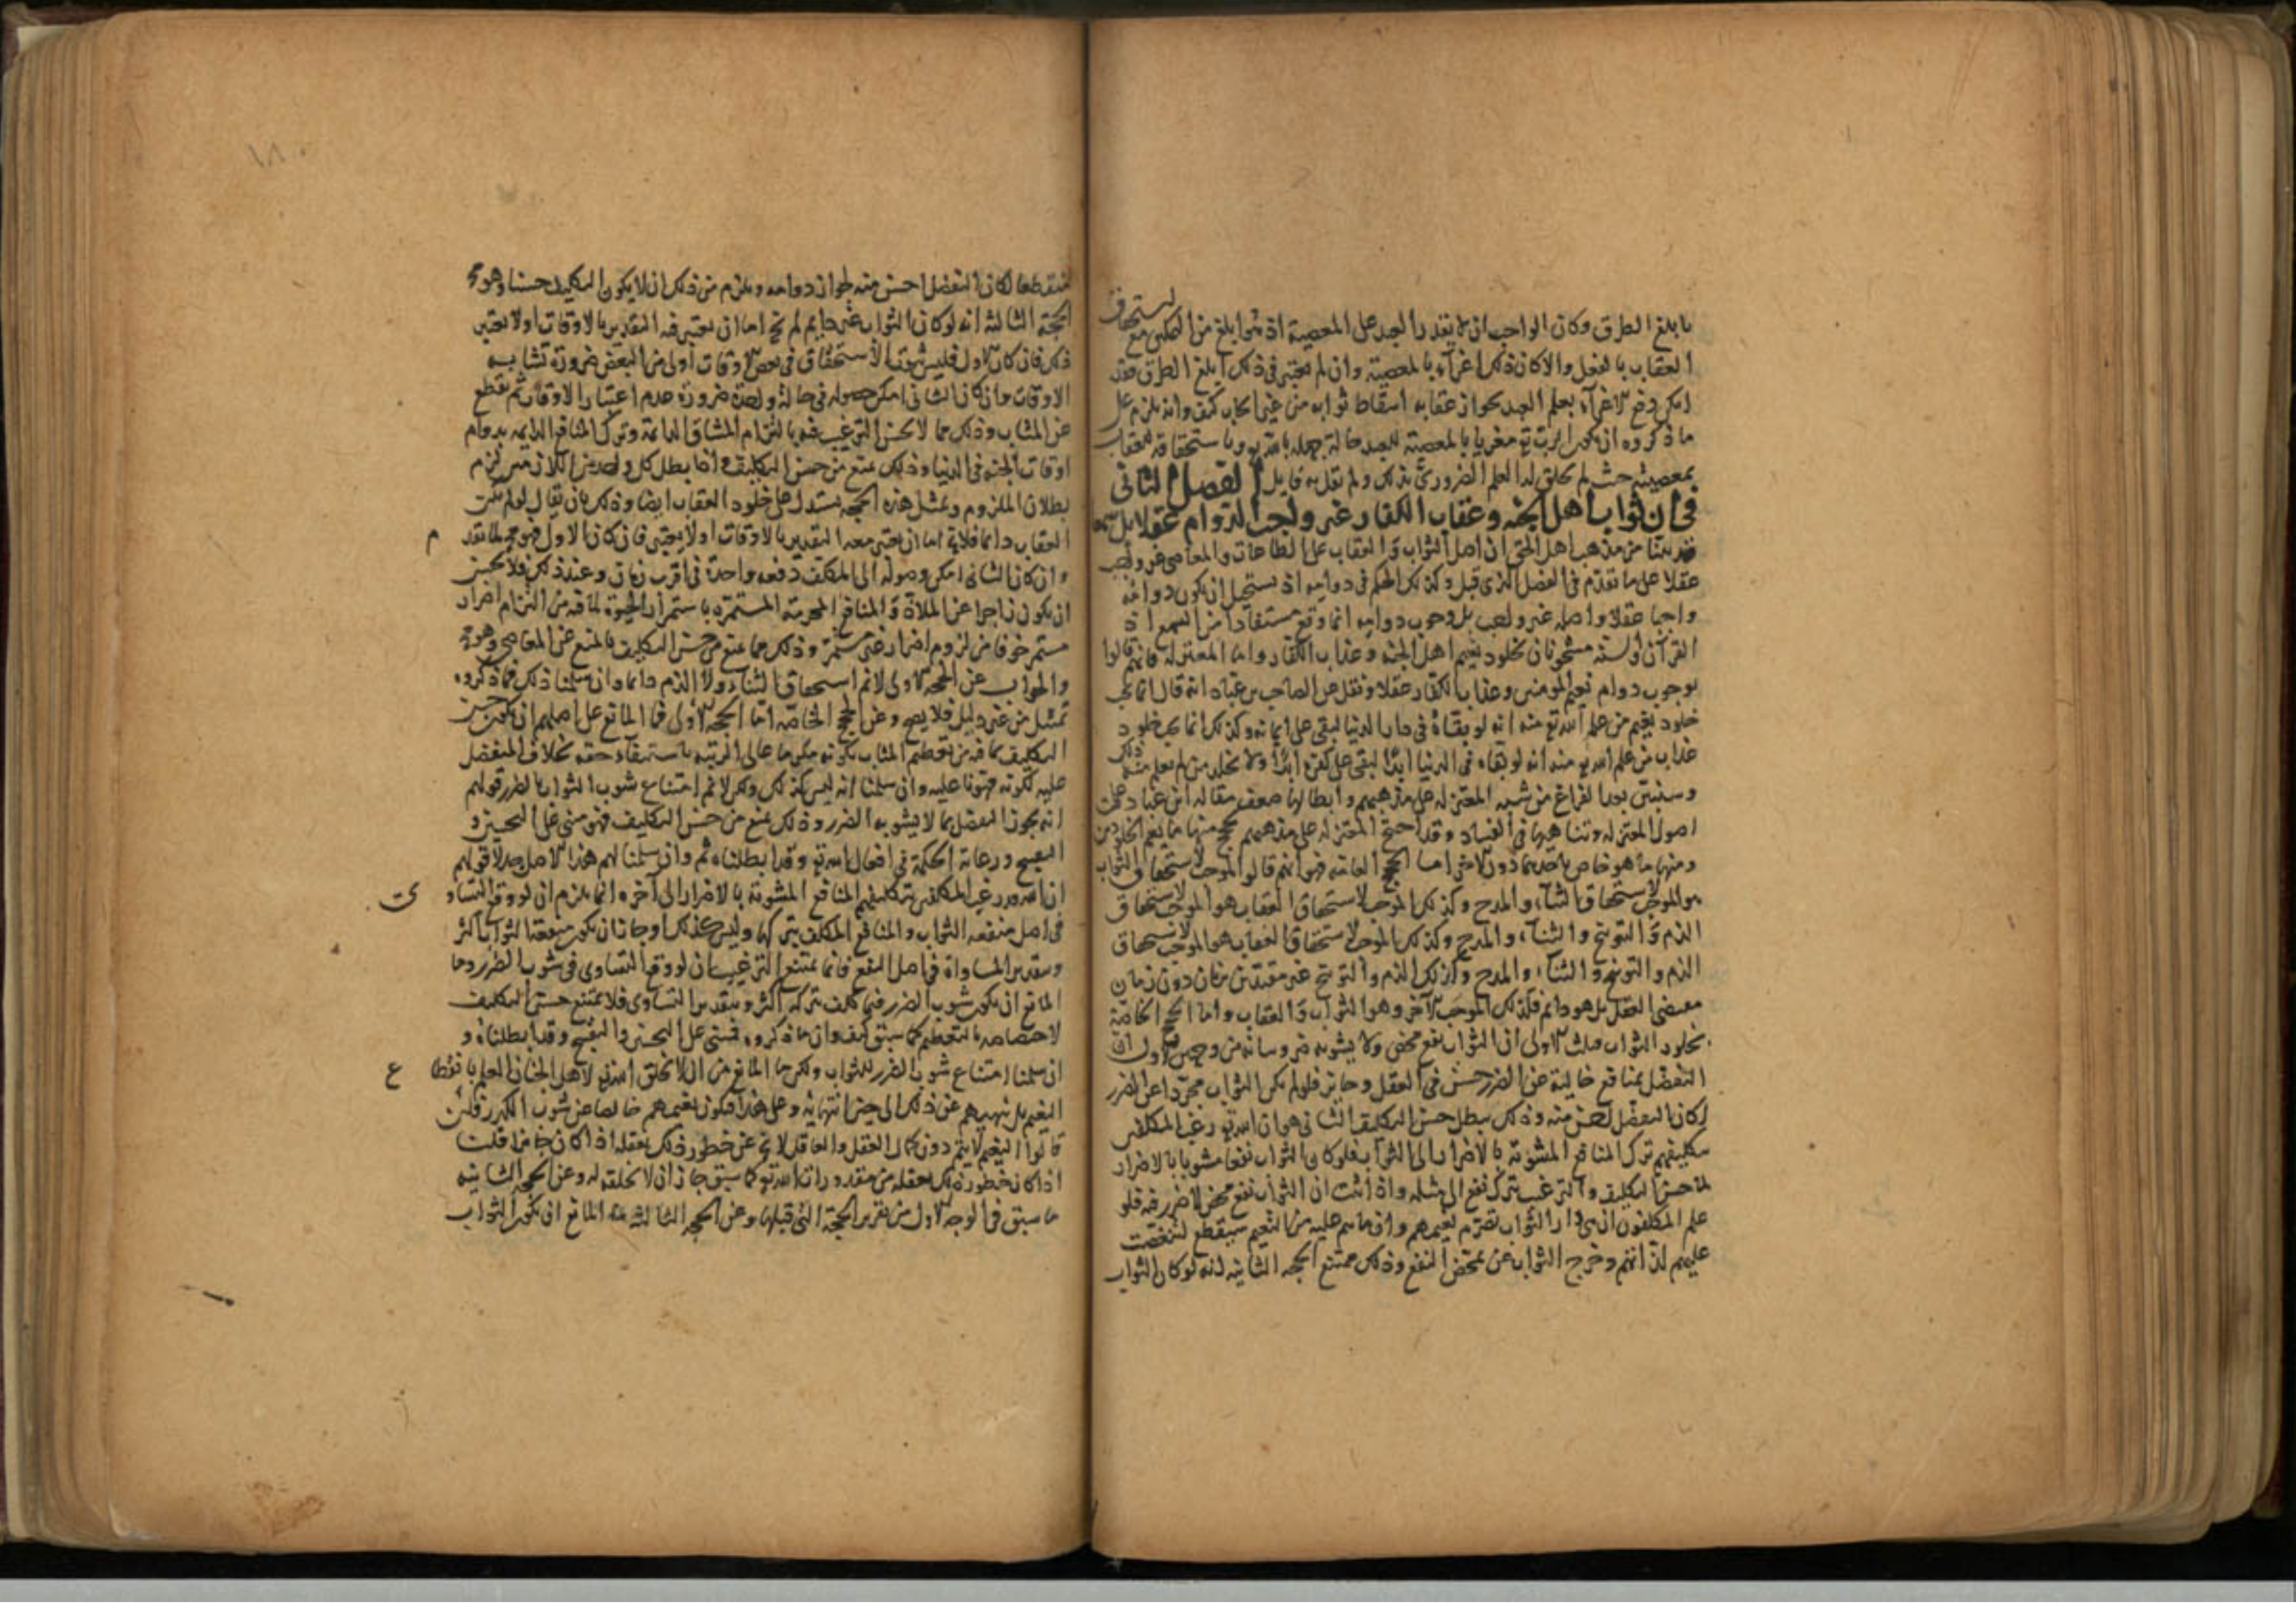 بابلغ الطرق وكان الواجب ان لا يقدر العبد على المعصية اذ هو ابلغ من التمكين مع استحقاق
العقاب بالفعل والا كان ذلك اغراء بالمعصية وان لم يعتبر في ذلك ابلغ الطرق فقد
امكن دفع الاغراء بعلم العبد بجواز عقابه اسقاط ثوابه من غير ايجاب كيف وانه يلزم على
ما ذكروه ان يكون الرب تع مغريا بالمعصية للعبد حالة جهله بالله تع وباستحقاقه للعقاب
بمعصيته حيث لم يخلق له العلم الضروري بذلك ولم يقل به قايل الفصل الثاني
في ان ثواب اهل الجنة وعقاب الكفار غير واجب الدوام عقلا بل سمعا
قد بينا من مذهب اهل الحق ان اصل الثواب والعقاب على الطاعات والمعاصي غير واجب
عقلا على ما تقدم في الفصل الذي قبل وكذلك الحكم في دوامه اذ يستحيل ان يكون دوامه
واجبا عقلا واصله غير واجب بل وجوب دوامه انما وقع مستفادا من السمع اذ
القرآن والسنة مشحونان بخلود نعيم اهل الجنة وعذاب الكفار واما المعتزلة فانهم قالوا
بوجوب دوام نعيم المومنين وعذاب الكفار عقلا ونقل عن الصاحب بن عباد انه قال انما يجب
خلود نعيم من علم الله تع منه انه لو بقاه في دار الدنيا لبقي على ايمانه وكذلك انما يجب خلود
عذاب من علم الله تع منه انه لو بقاه في الدنيا ابدا لبقي على كفره ابدا ولا يخلد من لم يعلم منه ذلك
وسنبين بعد الفراغ من شبه المعتزلة على مذهبهم وابطالها ضعف مقالة ابن عباد على
اصول المعتزلة وتناهيها في الفساد وقد احتج المعتزلة على مذهبهم بحجج منها ما يعم الخلودين
ومنها ما هو خاص باحدهما دون الاخر اما الحجج العامة فهو انهم قالوا الموجب لاستحقاق الثواب
هو الموجب لاستحقاق الثناء والمدح وكذلك الموجب لاستحقاق العقاب هو الموجب لاستحقاق
الذم والتوبيخ والثناء والمدح وكذلك الموجب لاستحقاق العقاب هو الموجب لاستحقاق
الذم والتوبيخ والثناء والمدح وكذلك الذم والتوبيخ غير مقيد بزمان دون زمان
بمقتضى العقل بل هو دائم فكذلك الموجب الآخر وهو الثواب والعقاب واما الحجج الخاصة
بخلود الثواب فثلث الاولى ان الثواب نفع محض ولا يشوبه ضرر وبيانه من وجهين الاول ان
التفضل بمنافع خالية عن الضرر حسن في العقل وجايز فلو لم يكن الثواب مجردا عن الضرر
لكان التفضل احسن منه وذلك يبطل حسن التكليف الثاني هو ان الله تع رغب المكلفين
بتكليفهم ترك المنافع المشوبة بالاضرار الى الثواب فلو كان الثواب نفعا مشوبا بالاضرار
لما حسن التكليف والترغيب بترك نفع الى مثله واذا ثبت ان الثواب نفع محض لا ضرر فيه فلو
علم المكلفون ان في دار الثواب تصرم نعيمهم وان ما هم عليه من النعيم سينقطع لتنغصت
عليهم لذاتهم وخرج الثواب عن تمحض النفع وذلك ممتنع الحجة الثانية انه لو كان الثواب
١٨٠
منقطعا لكان التفضل احسن منه لجواز دوامه ويلزم من ذلك ان لا يكون التكليف حسنا وهو مح
الحجة الثالثة انه لو كان الثواب غير دايم لم يخ اما ان يعتبر فيه التقدير بالاوقات او لا يعتبر
ذلك فان كان الاول فليس ثبوت الاستحقاق في بعض الاوقات اولى من البعض ضرورة تشابه
الاوقات وان كان الثاني امكن حصوله في حالة واحدة ضرورة عدم اعتبار الاوقات ثم يقطع
عن المثاب وذلك مما لا يحسن الترغيب فيه بالتزام المشاق الدائمة وترك المنافع الدايمه بدوام
اوقات الحيوة في الدنيا وذلك يمنع من حسن التكليف واذا بطل كل واحد من اللازمين لزم
بطلان الملزوم وبمثل هذه الحجة يستدل على خلود العقاب ايضا وذلك بان يقال لو لم يكن
العقاب دائما فلا يخ اما ان يعتبر معه التقدير بالاوقات او لا يعتبر فان كان الاول فهو مح لما تقدم
وان كان الثاني امكن وصوله الى المكلف دفعة واحدة في اقرب زمان وعند ذلك فلا يحسن
ان يكون زاجرا عن الملاذ والمنافع المحرمة المستمرة باستمرار الحيوة لما فيه من التزام اضرار
مستمر خوفا من لزوم اضرار غير مستمر وذلك مما يمنع من حسن التكليف بالمنع عن المعاصي وهو مح
والجواب عن الحجة الاولى لا نم استحقاق الثناء ولا الذم دائما وان سلمنا ذلك فما ذكروه
تمثيل من غير دليل فلا يصح وعن الحجج الخاصة اما الحجة الاولى فما المانع على اصلهم ان يكون حسن
التكليف بما فيه من تعظيم المثاب بكونه مكرما عالي الرتبة باستيفاء حقه بخلاف المتفضل
عليه لكونه ممنونا عليه وان سلمنا انه ليس كذلك ولكن لا نم امتناع شوب الثواب بالضرر قولهم
انه يجوز التفضل بما لا يشوبه الضرر وذلك يمنع من حسن التكليف فهو مبني على التحسين و
التقبيح ورعاية الحكمة في افعال الله تع وقد ابطلناه ثم وان سلمنا لهم هذا الاصل جدلا قولهم
ان الله تع رغب المكلفين بتكليفهم المنافع المشوبة بالاضرار الى آخره انما يلزم ان لو وقع التساوي
في اصل منفعة الثواب والمنافع المكلف بتركها وليس كذلك اذ جاز ان تكون منفعة الثواب اكثر
وبتقدير المساواة في اصل النفع فانما يمتنع الترغيب ان لو وقع التساوي في شوب الضرر وما
المانع ان يكون شوب الضرر فيما كلف بتركه اكثر وبتقدير التساوي فلا يمتنع حسن التكليف
لاختصاصه بالتعظيم كما سبق كيف وان ما ذكروه فمبني على التحسين والتقبيح وقد ابطلناه و
ان سلمنا امتناع شوب الضرر للثواب ولكن ما المانع من ان لا يخلق الله تع لاهل الجنان العلم بانقطاع
النعيم بل يلهيهم عن ذلك الى حين انتهائه وعلى هذا فيكون نعيمهم خالصا عن شوب الكدر فلئن
قالوا النعيم لا يتم دون كمال العقل والعاقل لا يخ عن خطور ذلك بعقله اذا كان جايزا قلت
اذا كان خطور ذلك بعقله من مقدورات الله تع كما سبق جاز ان لا يخلقه له وعن الحجة الثانية
ما سبق في الوجه الاول من تقرير الحجة التي قبلها وعن الحجة الثالثة ما المانع ان يكون الثواب